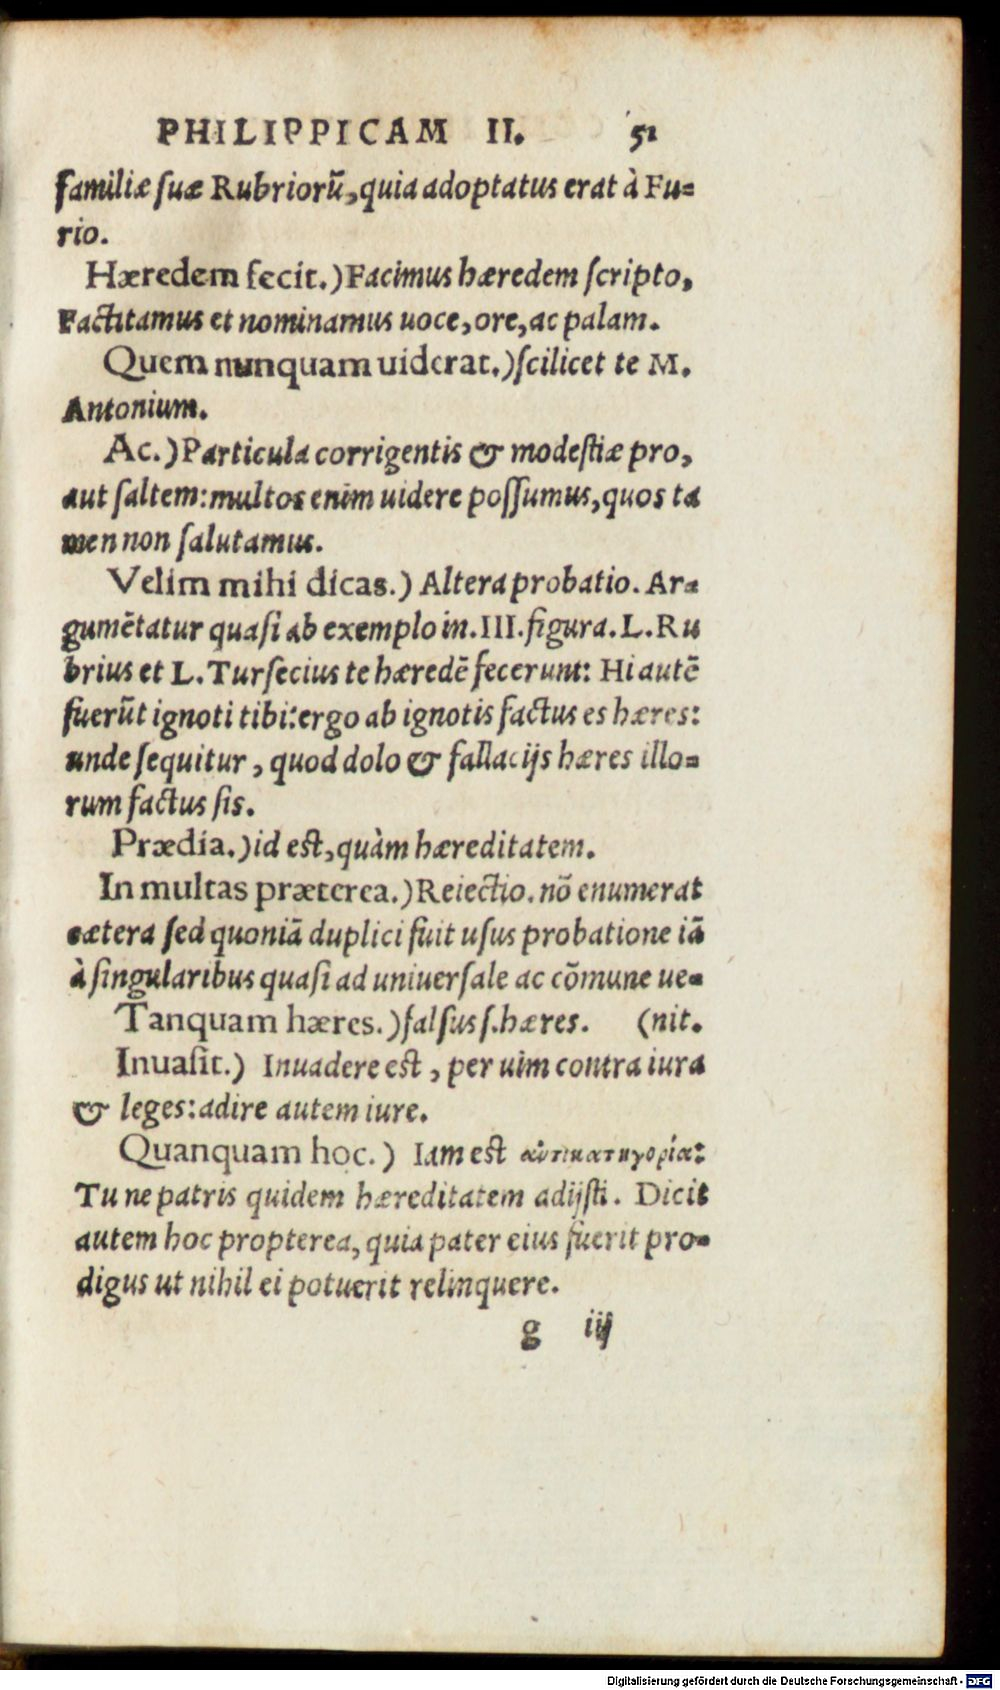 PHILIPPICAM II. 51
familiæ suæ Rubriorũ, quia adoptatus erat à Fu-
rio.
Hæredem fecit.) Facimus hæredem scripto,
Factitamus et nominamus uoce, ore, ac palam.
Quem nunquam uiderat.) scilicet te M.
Antonium.
Ac.) Particula corrigentis & modestiæ pro,
aut saltem: multos enim uidere possumus, quos ta
men non salutamus.
Velim mihi dicas.) Altera probatio. Ar-
gumẽtatur quasi ab exemplo in. III. figura. L. Ru
brius et L. Tursecius te hæredẽ fecerunt: Hi autẽ
fuerũt ignoti tibi: ergo ab ignotis factus es hæres:
unde sequitur, quod dolo & fallacijs hæres illo-
rum factus sis.
Prædia.) id est, quàm hæreditatem.
In multas præterea.) Reiectio. nõ enumerat
cætera sed quoniã duplici fuit usus probatione iã
à singularibus quasi ad uniuersale ac cõmune ue-
Tanquam hæres.) falsus s. hæres. (nit.
Inuasit.) Inuadere est, per uim contra iura
& leges: adire autem iure.
Quanquam hoc.) Iam est ἀντικατηγορία:
Tu ne patris quidem hæreditatem adijsti. Dicit
autem hoc propterea, quia pater eius fuerit pro-
digus ut nihil ei potuerit relinquere.
g iij
Digitalisierung gefördert durch die Deutsche Forschungsgemeinschaft - DFG